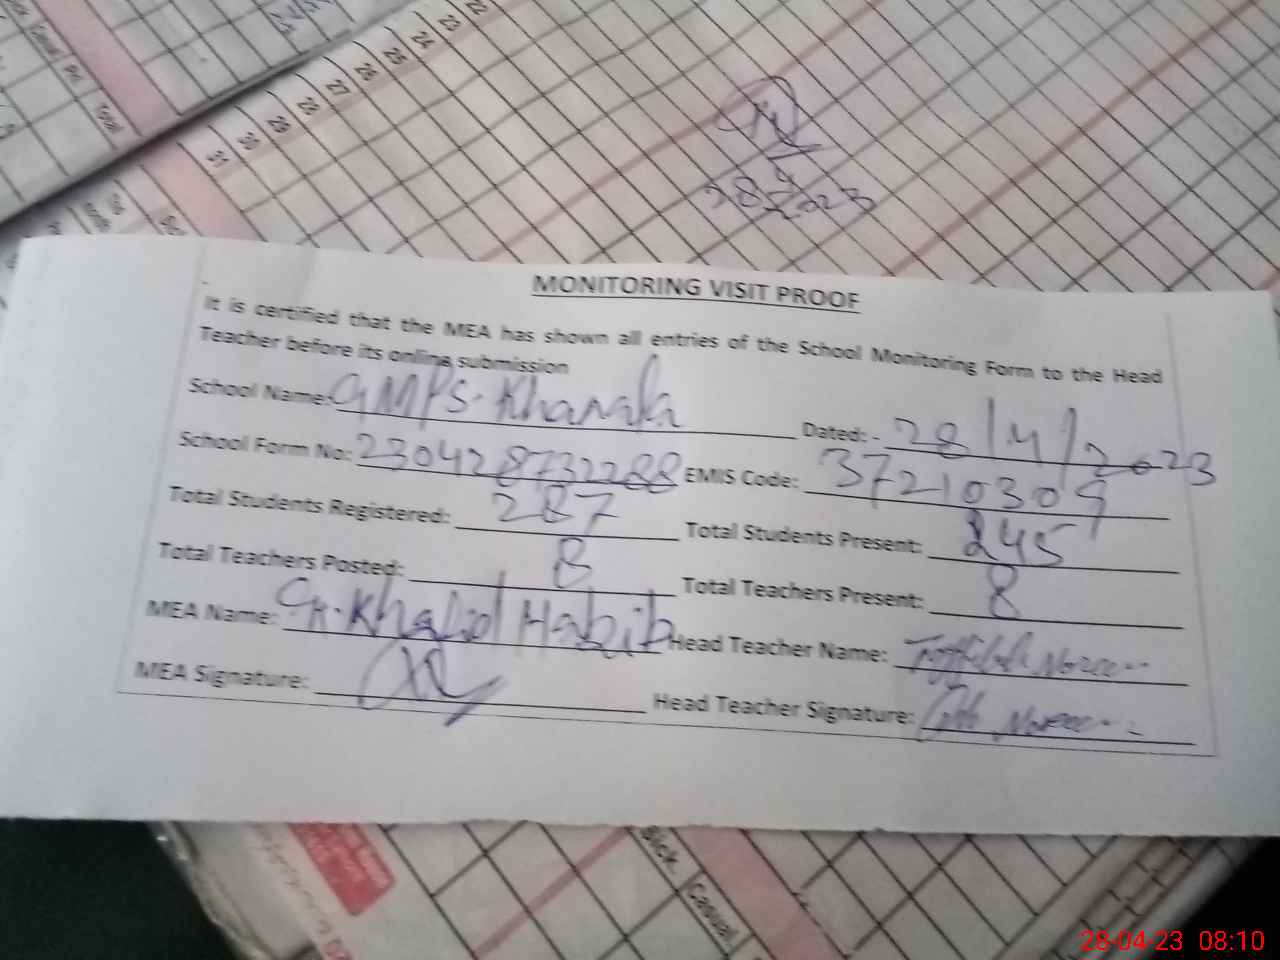 Total
22
23
24
25
26
27
28
29
30
31
28 4 2023
MONITORING VISIT PROOF
It is certified that the MEA has shown all entries of the School Monitoring Form to the Head
Teacher before its online submission
School Name: GMPS. Khanaka Dated: - 28/4/2023
School Form No: 230428732288 EMIS Code: 37210309
Total Students Registered: 287 Total Students Present: 245
Total Teachers Posted: 8 Total Teachers Present: 8
MEA Name: Ch. Khalid Habib Head Teacher Name:
MEA Signature: Head Teacher Signature:
Sick.
Casual.
28-04-23 08:10